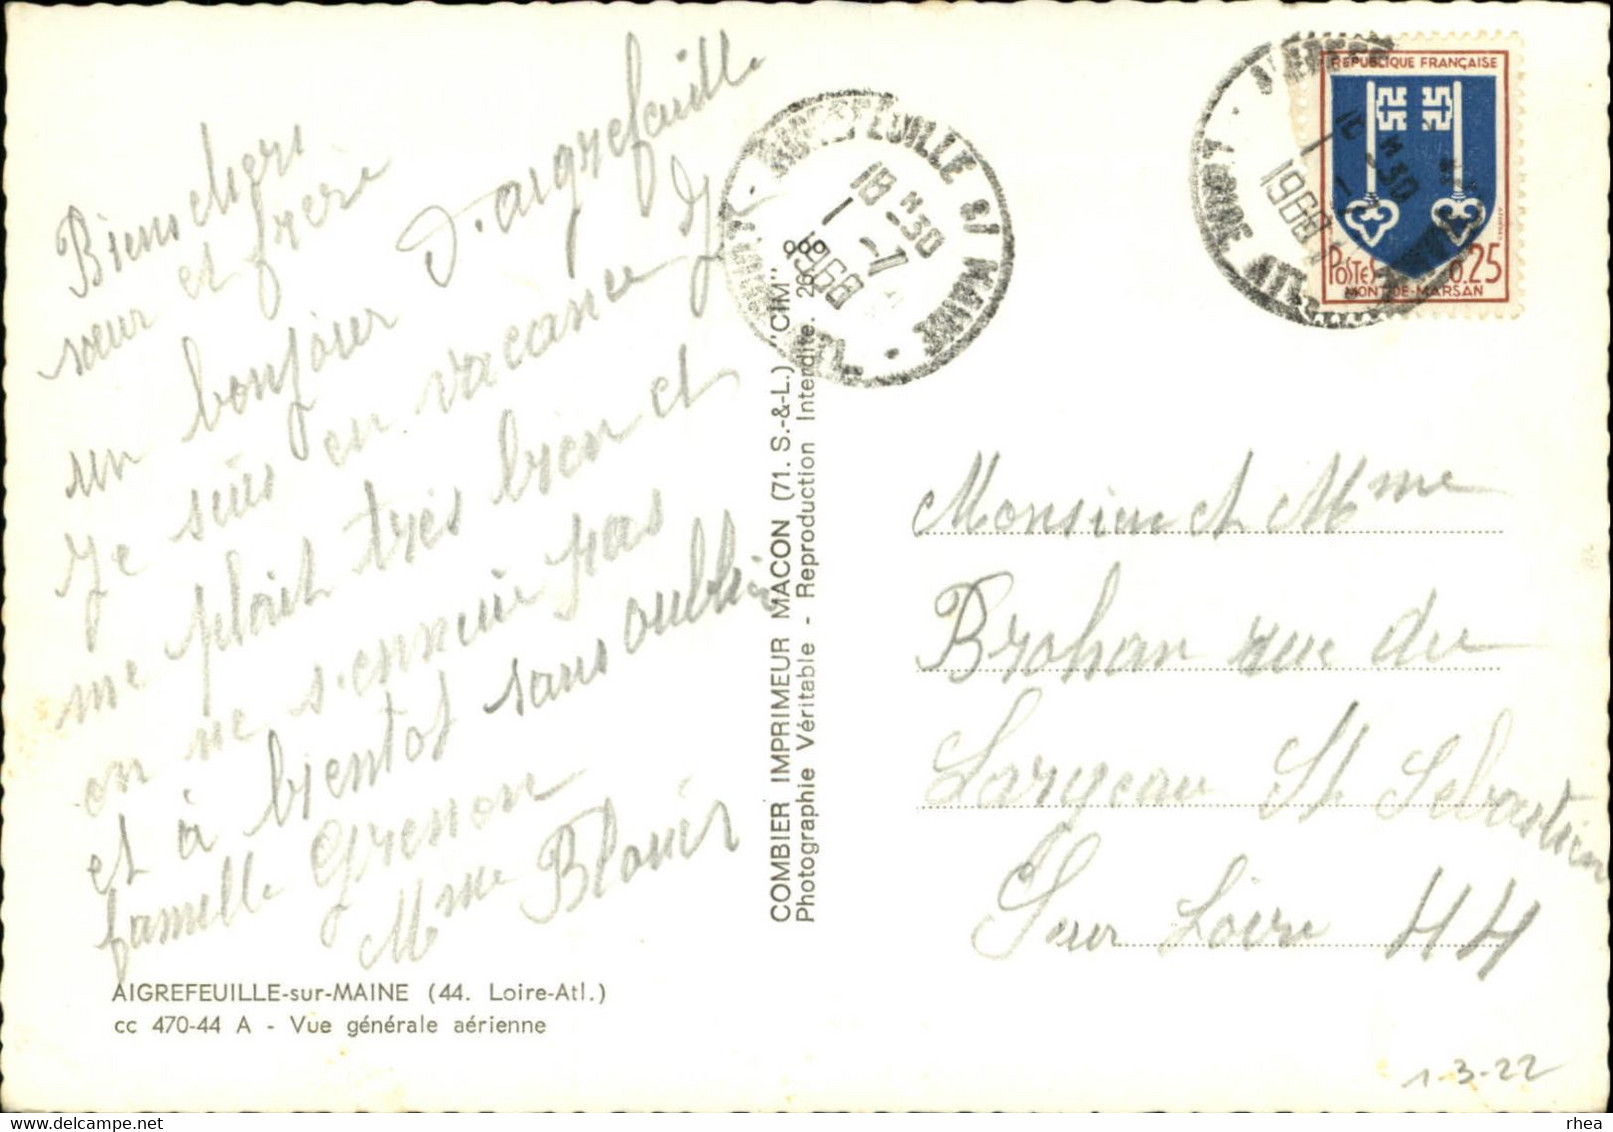 Biens chers
sœur et frère
un bonjour d'aigrefeuille
Je suis en vacance Je
me plait très bien et
on ne s'ennuie pas
et à bientot sans oublié
famille Grenon
Mme Blouin
AIGREFEUILLE-sur-MAINE (44. Loire-Atl.)
cc 470-44 A - Vue générale aérienne
COMBIER IMPRIMEUR MACON (71. S.-&-L.) "CIM"
Photographie Véritable - Reproduction Interdite.
18 H 30
1 -7
1968
REPUBLIQUE FRANÇAISE
POSTES 0.25
MONT-DE-MARSAN
LOIRE ATL
1968
Monsieur et Mme
Brohan rue du
Largeau St Sebastien
Sur Loire 44
1-3-22
rhea